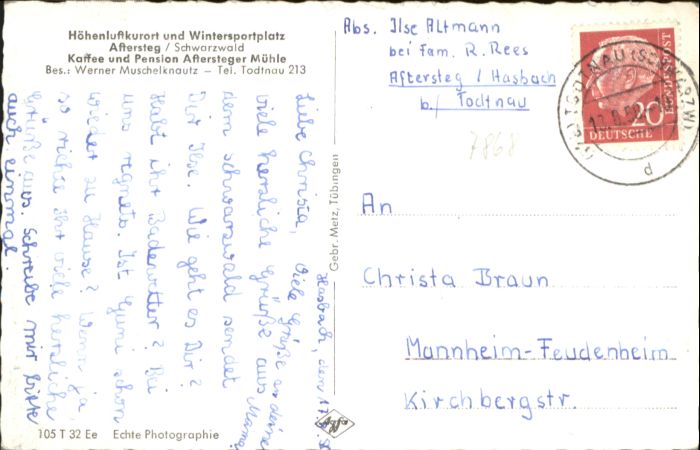 Höhenluftkurort und Wintersportplatz
Aftersteg / Schwarzwald
Kaffee und Pension Aftersteger Mühle
Bes.: Werner Muschelknautz — Tel. Todtnau 213
Abs. Ilse Altmann
bei Fam. R. Rees
Aftersteg / Hasbach
b/ Todtnau
20
DEUTSCHE
BUNDESPOST
TODTNAU (SCHWARZW)
d
7868
Hasbach, den 17.
Liebe Christa,
viele herzliche Grüße aus
dem schwarzwald sendet
Dir Ilse. Wie geht es Dir?
Habt ihr Badewetter? Bei
uns regnets. Ist Guni schon
wieder zu Hause? Wenn ja
so richte ihr viele herzliche
Grüße aus. Schreibe mir bitte
auch einmal.
Viele Grüße an deine
Mama
Gebr. Metz, Tübingen
An
Christa Braun
Mannheim-Feudenheim
Kirchbergstr.
105 T 32 Ee Echte Photographie